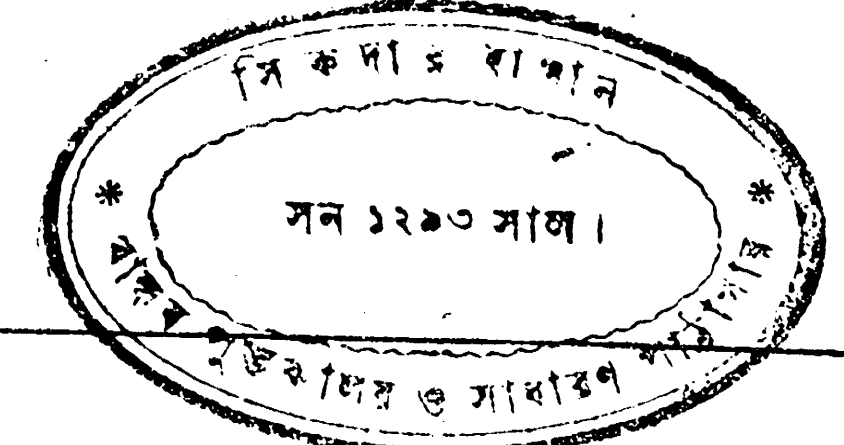 সিকদার বাগান
সন ১২৯৩ সাল।
বান্ধব পুস্তকালয় ও সাধারণ পাঠাগার